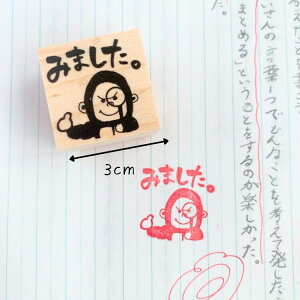 みました。
3cm
みました。
いさんの言葉一つでどんなことを考えて発した
まとめる」ということをするのが楽しかった。